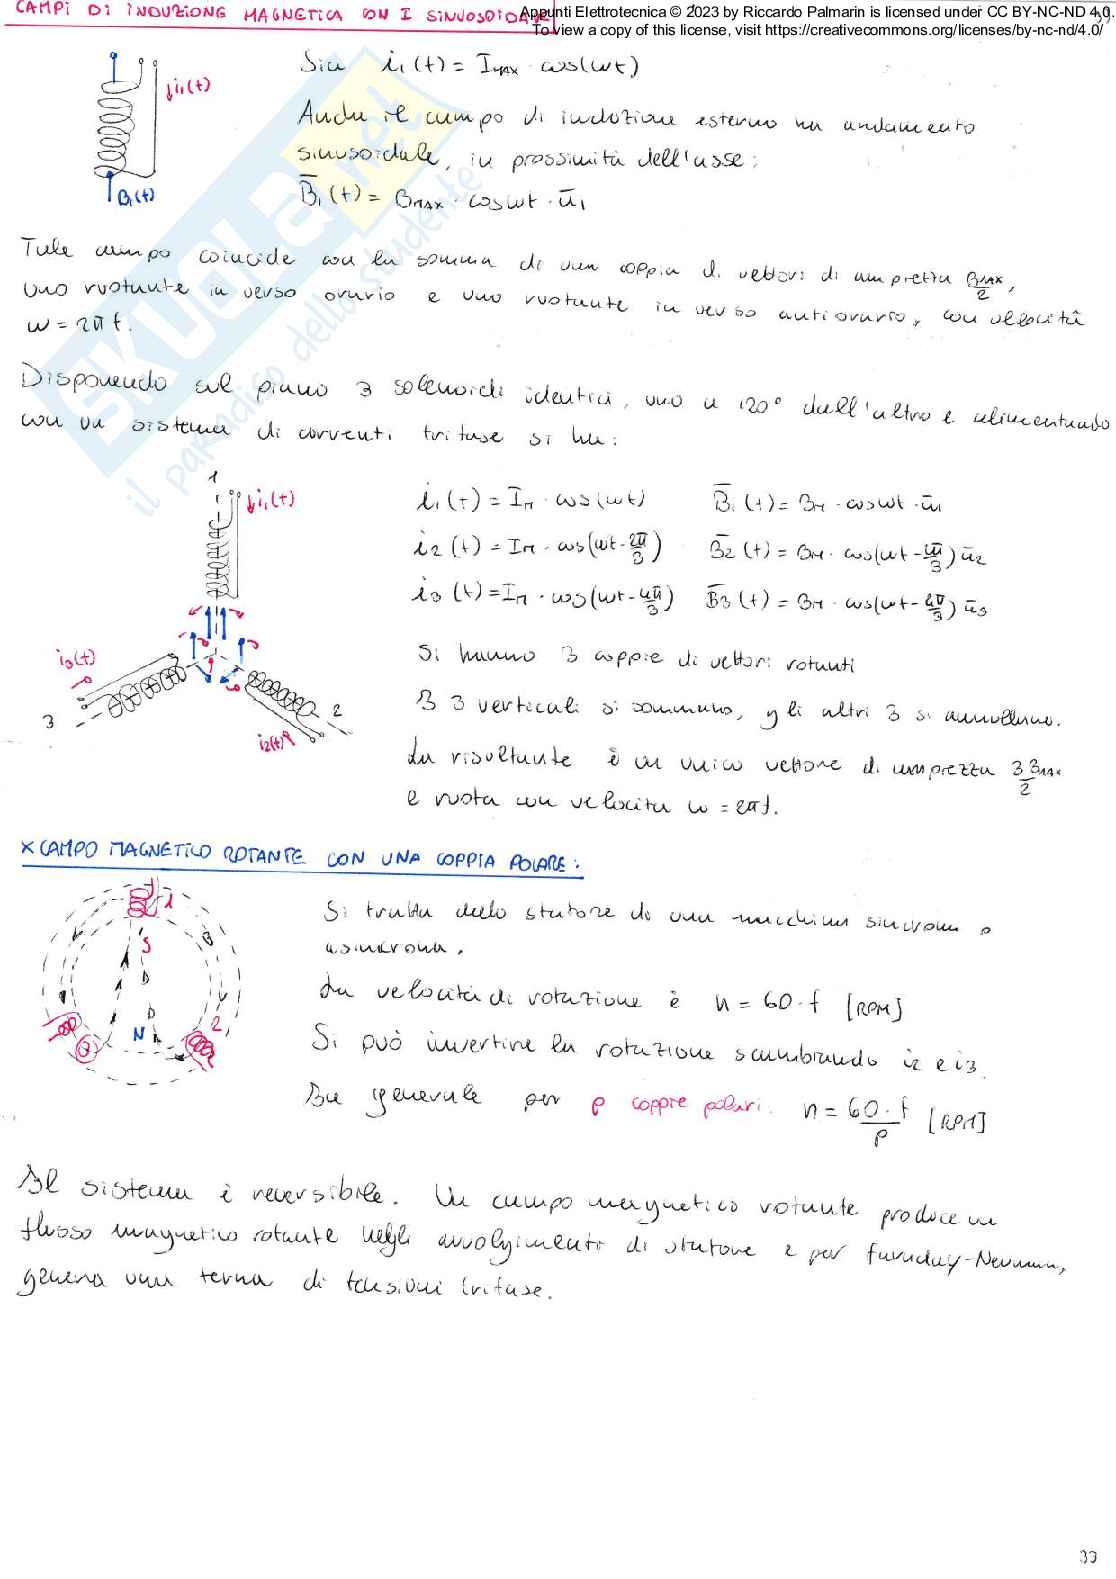 CAMPI DI INDUZIONE MAGNETICA CON I SINUSOIDALE
Appunti Elettrotecnica © 2023 by Riccardo Palmarin is licensed under CC BY-NC-ND 4.0.
To view a copy of this license, visit https://creativecommons.org/licenses/by-nc-nd/4.0/
Sia i₁(t) = Iₘₐₓ · cos(ωt)
↓i₁(t)
Anche il campo di induzione esterno ha andamento
sinusoidale, in prossimità dell'asse:
B̅₁(t) = Bₘₐₓ · cosωt · u̅₁
B₁(t)
SKUOLA.net
il paradiso dello studente
Tale campo coincide con la somma di una coppia di vettori di ampiezza Bₘₐₓ/2,
uno ruotante in verso orario e uno ruotante in verso antiorario, con velocità
ω = 2π f.
Disponendo sul piano 3 solenoidi identici, uno a 120° dall'altro e alimentando
con un sistema di correnti trifase si ha:
1
↓i₁(t)
i₁(t) = Iₘ · cos(ωt) B̅₁(t) = Bₘ · cosωt · u̅₁
i₂(t) = Iₘ · cos(ωt - 2π/3) B̅₂(t) = Bₘ · cos(ωt - 2π/3) u̅₂
i₃(t) = Iₘ · cos(ωt - 4π/3) B̅₃(t) = Bₘ · cos(ωt - 4π/3) u̅₃
i₃(t)
3
2
i₂(t)
Si hanno 3 coppie di vettori rotanti
I 3 verticali si sommano, gli altri 3 si annullano.
La risultante è un unico vettore di ampiezza 3Bₘₐₓ/2
e ruota con velocità ω = 2πf.
X CAMPO MAGNETICO ROTANTE CON UNA COPPIA POLARE:
1
S
B
N
2
3
Si tratta dello statore di una macchina sincrona o
asincrona.
La velocità di rotazione è n = 60 · f [RPM]
Si può invertire la rotazione scambiando i₂ e i₃.
In generale per p coppie polari. n = 60 · f/p [RPM]
Il sistema è reversibile. Un campo magnetico rotante produce un
flusso magnetico rotante negli avvolgimenti di statore e per Faraday-Neumann,
genera una terna di tensioni trifase.
39